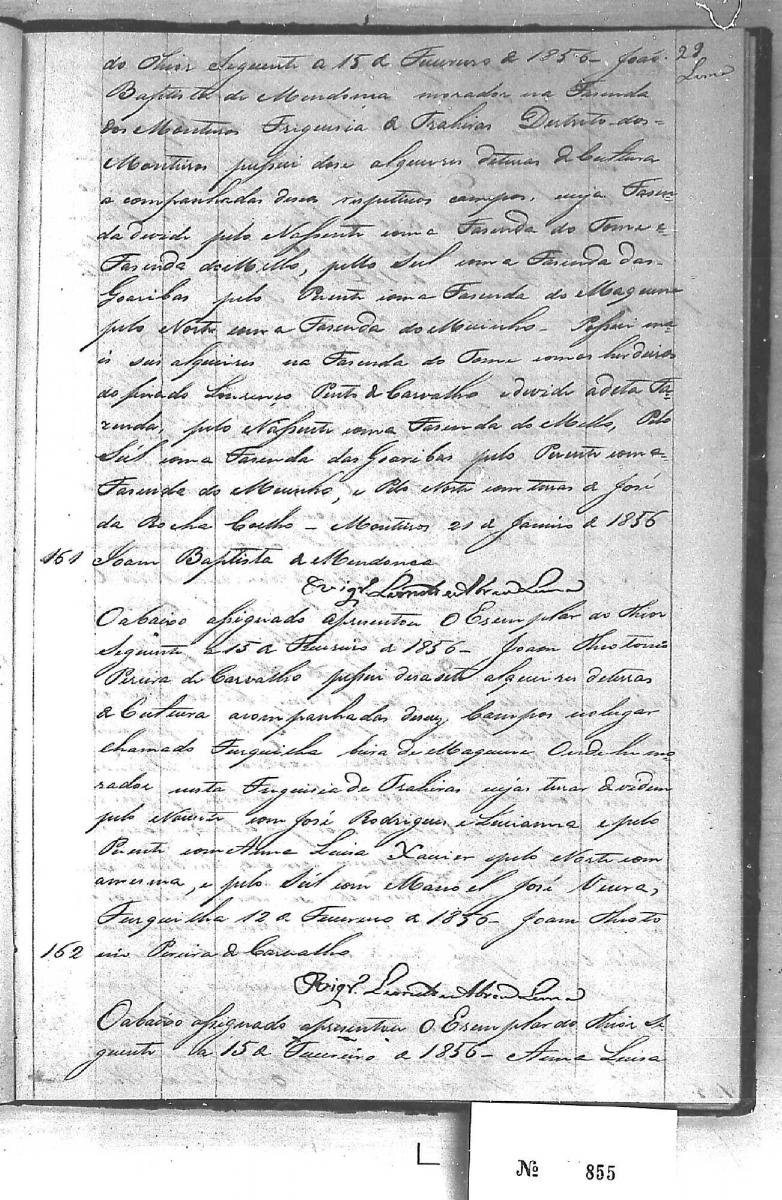 29
Lima
do Thior Seguente a 15 de Fevereiro de 1856 – João
Baptista de Mendonca morador na Fazenda
dos Monteiros Freguesia de Trahiras Destrito dos-
Monteiros pussui dose alqueires deterras de Cultura
acompanhadas deseus respetivos campos, cuja Fasen-
da devide pelo Nassente coma Fasenda do Tome e
Fasenda do Mello, pello Sul coma Fasenda das
Goaribas pelo Puente coma Fasenda do Maquine
pelo Norte coma Fasenda do Muinho – Pussui ma-
is seis alqueires na Fasenda do Tome comos herdeiros
do finado Lourenço Pinto de Carvalho edevide adeta Fa-
zenda, pelo Nassente coma Fasenda do Mello, Pelo
Sul coma Fasenda das Goaribas pelo Puente coma
Fasenda do Muinho, e Pelo Norte com terras de José
da Rocha Coelho – Monteiros 21 de Janeiro de 1856
161 Joam Baptista de Mendonca
O vigr.º Leonel de Abreu Lima
Oabaixo assignado apresentou O Exemplar do Thior
Seguente a 15 de Fevereiro de 1856 – Joam Theotonio
Pereira de Carvalho pussui desasete alqueires deterras
de Cultura acompanhadas deseus Campos nolugar
chamado Furquilha beira de Maquine Onde he mo-
rador nesta Freguisia de Trahiras cujas terras devidem
pelo Nacente com José Rodrigues e Lucianna e pelo
Puente com Anna Luisa Xavier epelo Norte com
amesma, e pelo Sul com Manoel José Vieira,
Furquilha 12 de Fevereiro de 1856 – Joam Theoto
162 nio Pereira de Carvalho
O Vigr.º Leonel de Abreu Lima
Oabaixo assignado apresentou O Exemplar do Thior Se
guente a 15 de Fevereiro de 1856 – Anna Luisa
Nº 855